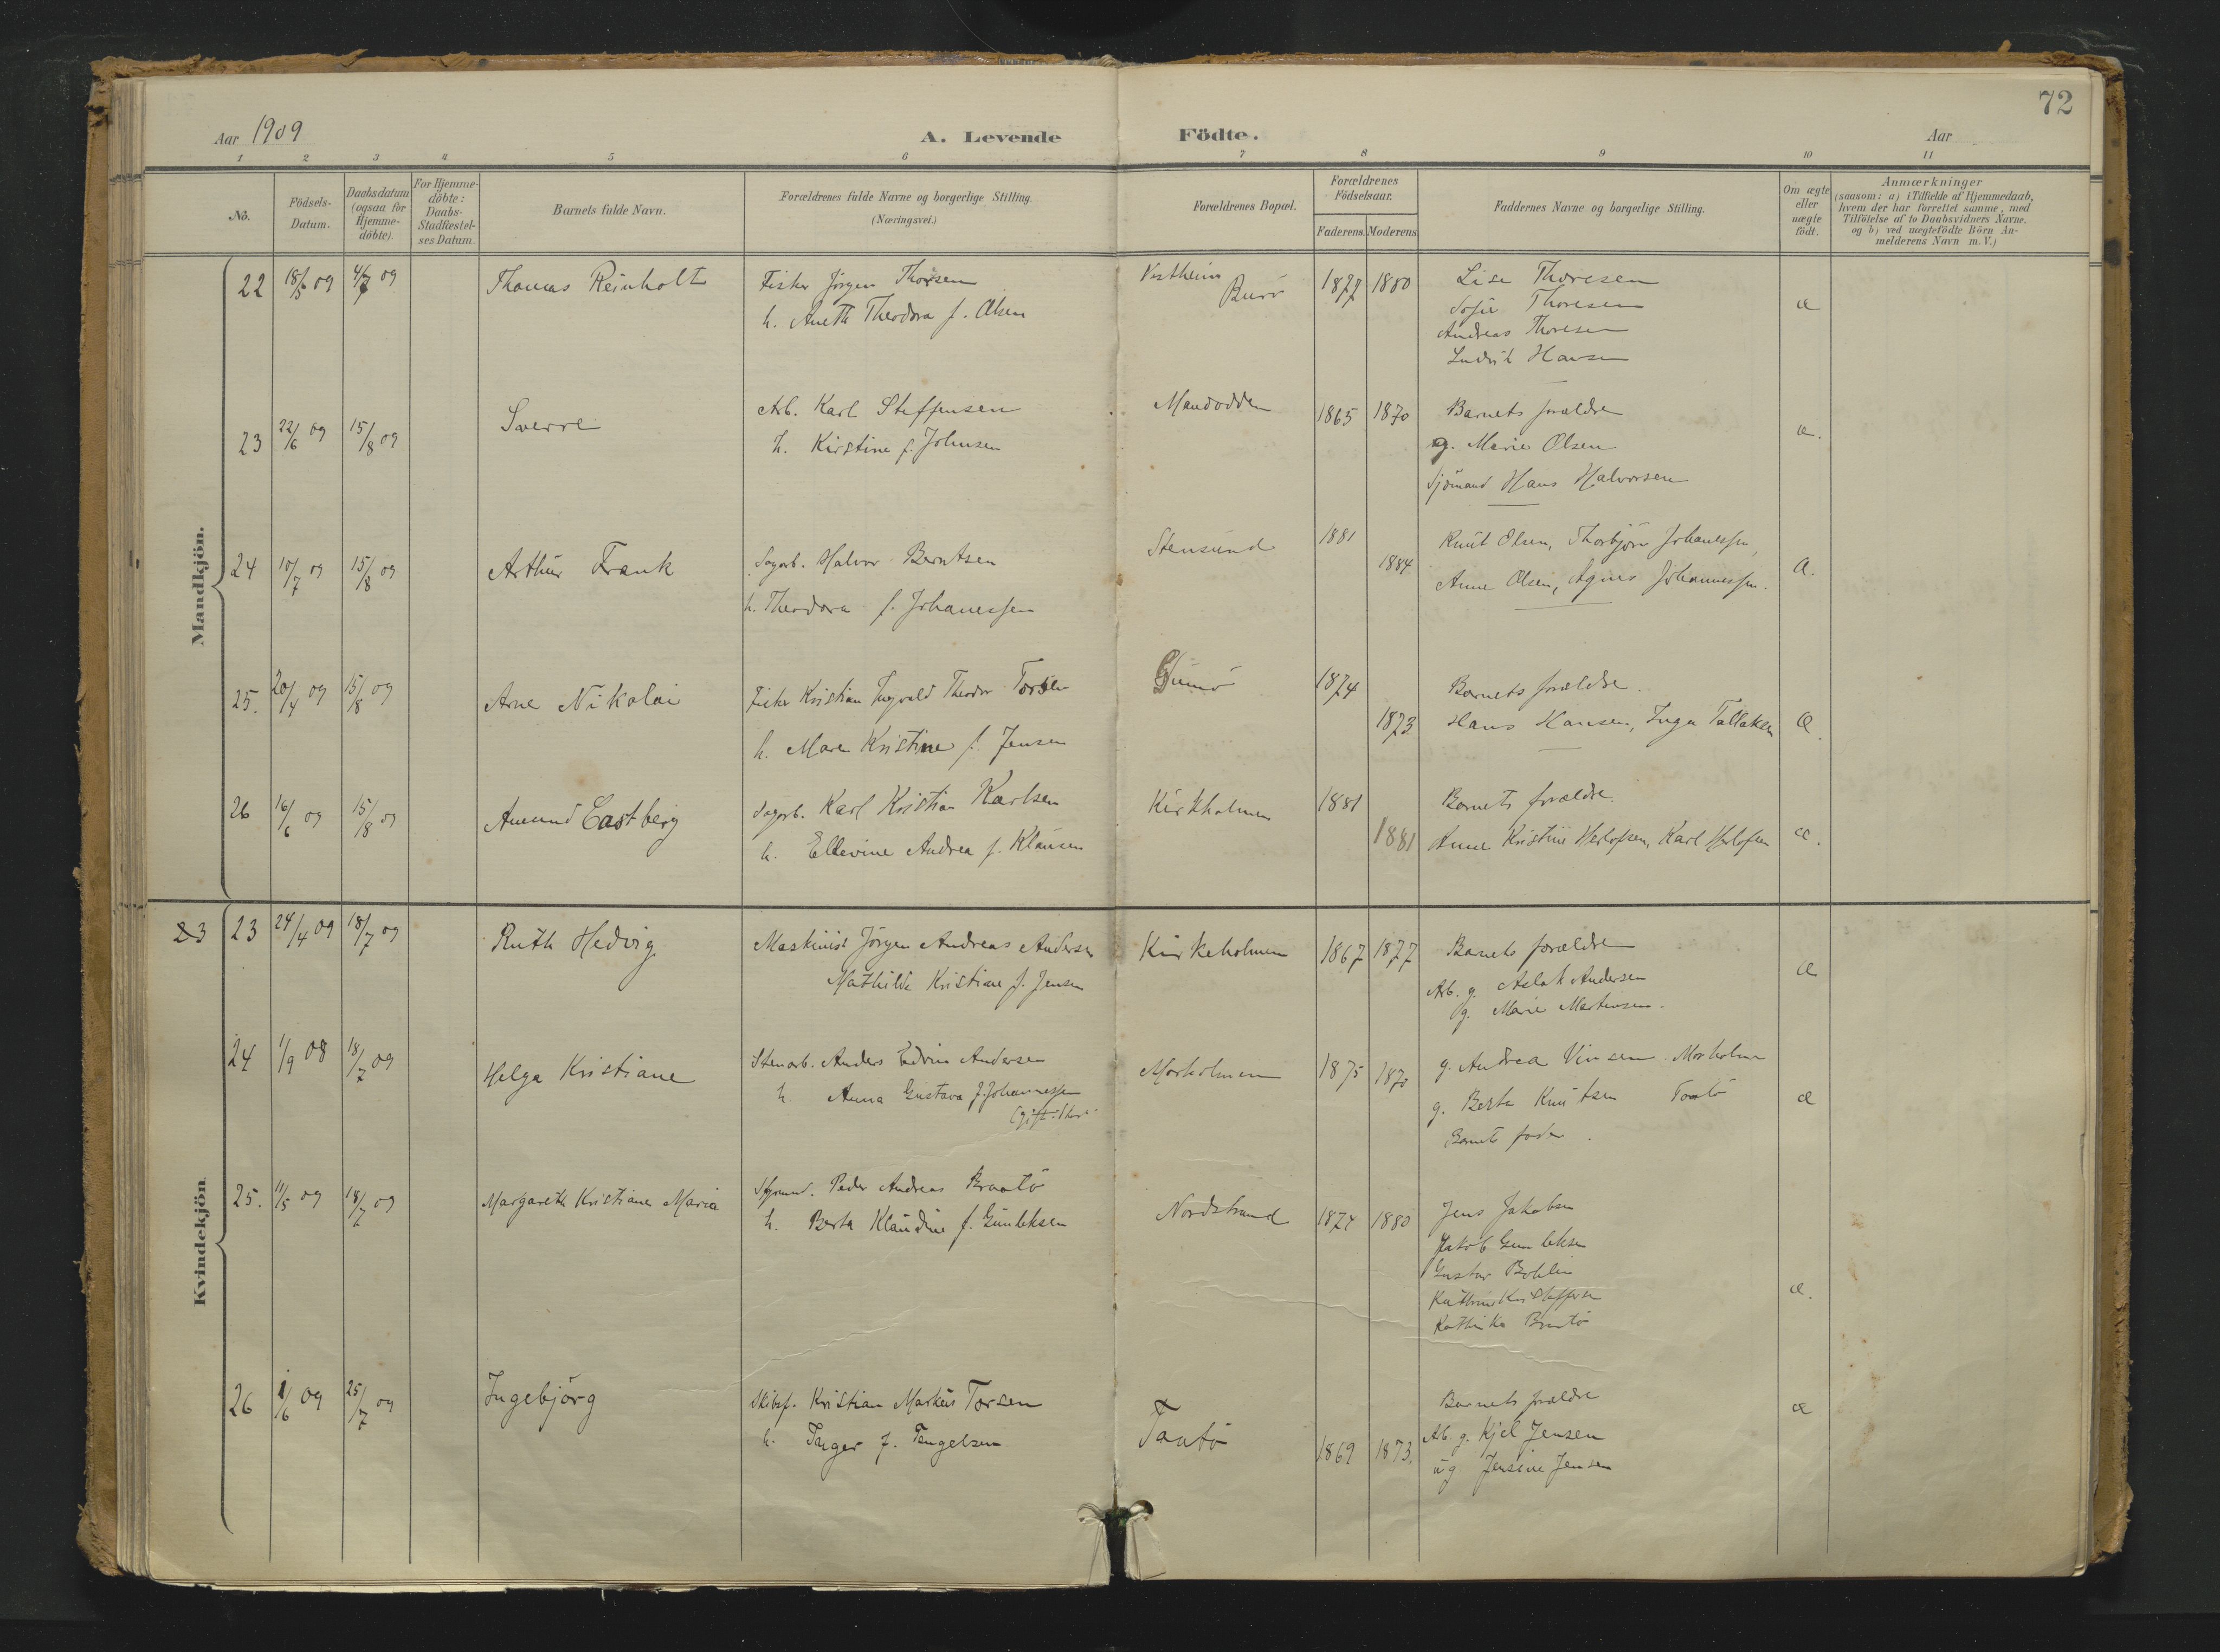 72
Aar 1909
A. Levende Födte.
Aar
1 2 3 4 5 6 7 8 9 10 11
No.
Födsels-
Datum.
Daabsdatum
(ogsaa for
Hjemme-
döbte).
For Hjemme-
döbte:
Daabs-
Stadfestel-
ses Datum.
Barnets fulde Navn.
Forældrenes fulde Navne og borgerlige Stilling.
(Næringsvei.)
Forældrenes Bopæl.
Forældrenes
Födselsaar.
Faderens. Moderens
Faddernes Navne og borgerlige Stilling.
Om ægte
eller
uægte
födt.
Anmærkninger
(saasom: a) i Tilfælde af Hjemmedaab,
hvem der har forrettet samme, med
Tilföielse af to Daabsvidners Navne.
og b) ved uægtefödte Börn An-
melderens Navn m. V.)
Mandkjön.
22 18/5 09 4/7 09 Thomas Reinholt
Fisker Jörgen Thorsen
h. Aneth Theodora f. Olsen
Vestheim
Burö
1877 1880
Lise Thoresen
Sofie Thoresen
Andreas Thoresen
Ludvik Hansen
æ
23 22/6 09 15/8 09 Sverre
Arb. Karl Steffensen
h. Kirstine f. Johnsen
Mandodden
1865 1870
Barnets forældre
g. Marie Olsen
Sjömand Hans Halvorsen
æ.
24 10/7 09 15/8 09 Arthur Frank
Sagarb. Halvor Berntsen
h. Theodora f. Johanessen
Stensund
1881 1884
Knut Olsen, Thorbjörn Johanessen,
Anne Olsen, Agnes Johannessen.
æ.
25. 20/4 09 15/8 09 Arne Nikolai
Fisker Kristian Ingvald Theodor Torsen
h. Maren Kristine f. Jensen
Gumö
1874 1873
Barnets forældre.
Hans Hansen, Inga Tallaksen
æ.
26 16/6 09 15/8 09 Amund Castberg
Sagarb. Karl Kristian Karlsen
h. Ellevine Andrea f. Klausen
Kirkholmen
1881 1881
Barnets forældre.
Anne Kristine Herlofsen, Karl Herlofsen
æ.
Kvindekjön.
23 23 24/4 09 18/7 09 Ruth Hedvig
Maskinist Jörgen Andreas Andersen
Mathilde Kristiane f. Jensen
Kirkeholmen
1867 1877
Barnets forældre
Arb. g. Aslak Andersen
g. Marie Martinsen.
æ
24 1/9 08 18/7 09 Helga Kristiane
Stenarb. Anders Edvin Andersen
h. Anna Gustava f. Johannessen
Morholmen
1875 1870
g. Andrea Vinsen Morholmen
g. Berta Knutsen Taatö
Barnets fader.
æ
25. 11/5 09 18/7 09 Margareth Kristiane Maria
Styrmd. Peder Andreas Braatö
h. Berta Klaudine f. Gunleksen
Nordstrand
1874 1880
Jens Jakobsen
Jakob Gunleksen
Gustav Bohlin
Kathrine Kristoffersen
Kathinka Braatö
æ.
26 1/6 09 25/7 09 Ingebjörg
Skibsf. Kristian Markus Torsen
h. Inger f. Tengelsen
Taatö
1869 1873.
Barnets forældre
Arb. g. Kjel Jensen
ug Jensine Jensen
æ